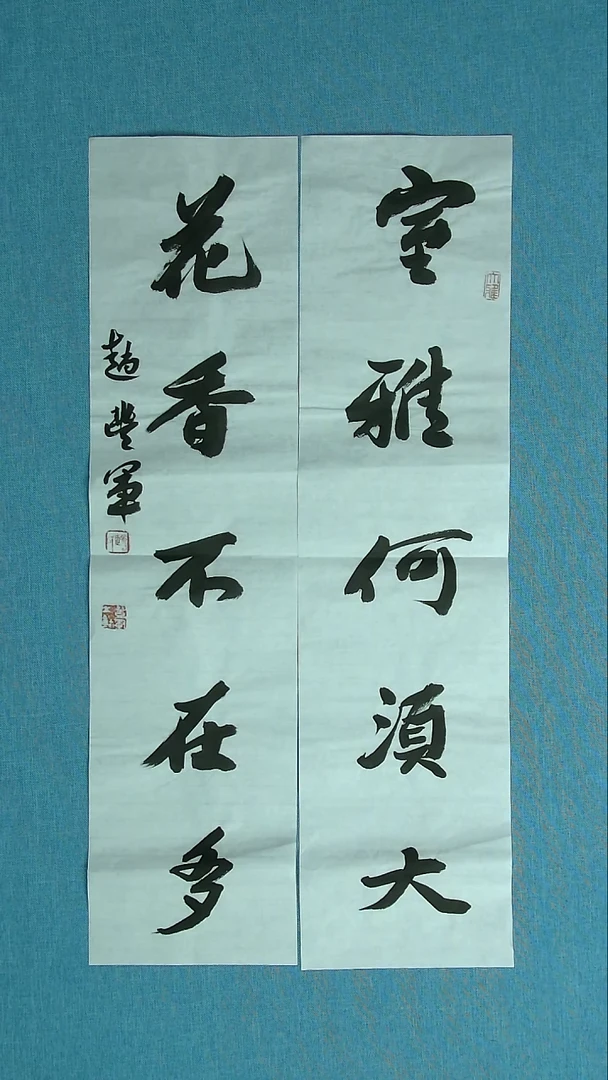 室雅何須大
花香不在多
趙豐軍